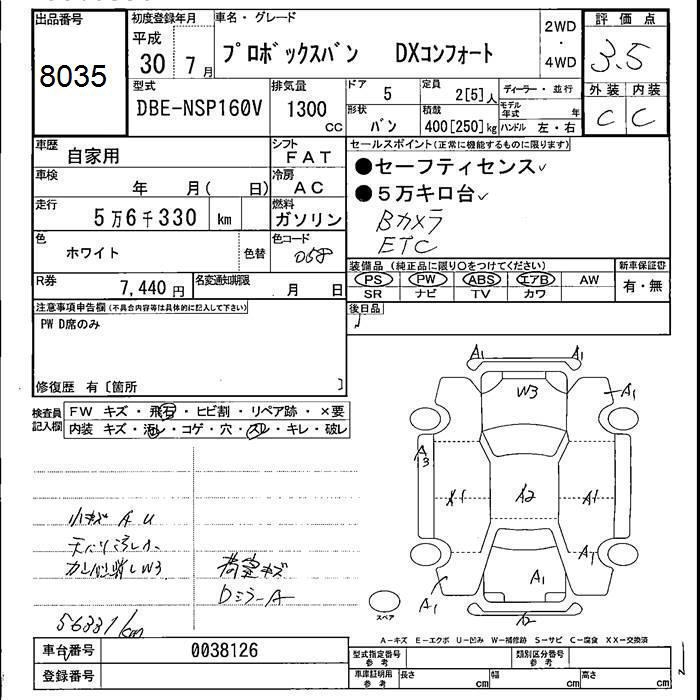 出品番号
8035
初度登録年月
平成
30 7月
車名・グレード
プロボックスバン DXコンフォート
2WD
・
4WD
評価点
3.5
型式
DBE-NSP160V
排気量
1300
cc
ドア
5
定員
2[5]人
ディーラー・並行
形状
バン
積載
400[250]kg
モデル年式 年
ハンドル 左・右
外装 内装
C C
車歴
自家用
シフト
FAT
セールスポイント(正常に機能するものに限ります)
●セーフティセンス✓
●5万キロ台✓
Bカメラ
ETC
車検
年 月( 日)
冷房
AC
走行
5万6千330 km
燃料
ガソリン
色
ホワイト
色替
色コード
058
装備品(純正品に限り○をつけてください)
PS PW ABS エアB AW
SR ナビ TV カワ
新車保証書
有・無
R券
7,440円
名変通知期限
月 日
後日品
注意事項申告欄(不具合内容等は具体的に記入して下さい)
PW D席のみ
修復歴 有〔箇所 〕
検査員
記入欄
FW キズ・飛石・ヒビ割・リペア跡・×要
内装 キズ・汚レ・コゲ・穴・スレ・キレ・破レ
A1 A1
W3
A1
A3
X1 A2 A1
A1
A1
A1
スペア
小キズ A U
W3
荷室キズ
DミラーA
56331km
A-キズ E-エクボ U-凹み W-補修跡 S-サビ C-腐食 XX-交換済
車台番号
0038126
登録番号
型式指定番号
参考
類別区分番号
参考
車庫証明用
参考
長さ cm
幅 cm
高さ cm